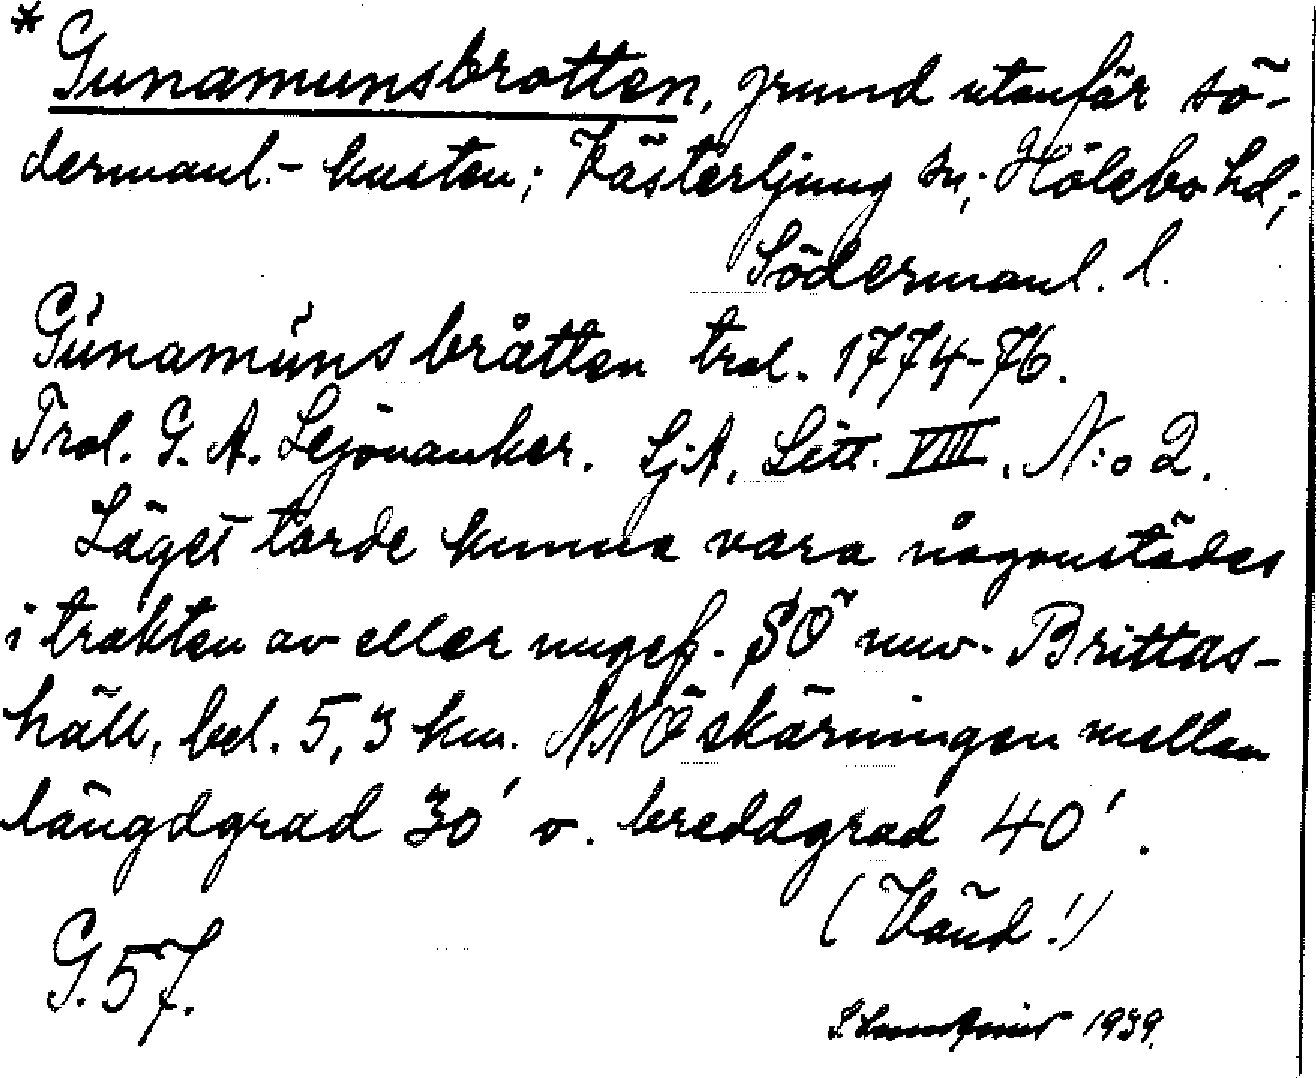 * Gunamunsbrotten, grund utanför sö-
dermanl.- kusten; Västerljung sn; Hölebo hd;
Södermanl. l.
Gunamuns bråtten trol. 1774-76.
Trol. G. A. Lejonanker. SjA. Litt. VIII. N:o 2.
Läget torde kunna vara någonstädes
i trakten av eller ungef. SÖ nuv. Brittas-
häll, bel. 5,3 km. NNÖ skärningen mellan
längdgrad 30' o. breddgrad 40'.
(Vänd!)
G. 57.
1939.